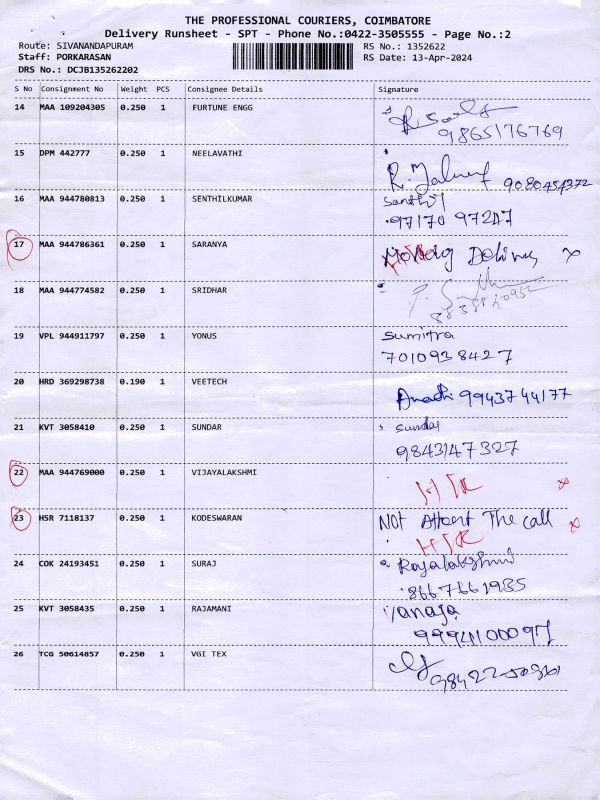 THE PROFESSIONAL COURIERS, COIMBATORE
Delivery Runsheet - SPT - Phone No.:0422-3505555 - Page No.:2
Route: SIVANANDAPURAM RS No.: 1352622
Staff: PORKARASAN RS Date: 13-Apr-2024
DRS No.: DCJB135262202
S No Consignment No Weight PCS Consignee Details Signature
14 MAA 109204305 0.250 1 FURTUNE ENGG
9865176769
15 DPM 442777 0.250 1 NEELAVATHI
9080454372
16 MAA 944780813 0.250 1 SENTHILKUMAR
97170 97247
17 MAA 944786361 0.250 1 SARANYA
Delivery x
18 MAA 944774582 0.250 1 SRIDHAR
19 VPL 944911797 0.250 1 YONUS Sumitra
7010938427
20 HRD 369298738 0.190 1 VEETECH
9943744177
21 KVT 3058410 0.250 1 SUNDAR Sundar
9843147327
22 MAA 944769000 0.250 1 VIJAYALAKSHMI
x
23 HSR 7118137 0.250 1 KODESWARAN Not Attent The call x
24 COK 24193451 0.250 1 SURAJ Rajalakshmi
8667661935
25 KVT 3058435 0.250 1 RAJAMANI Vanaja
9994100097
26 TCG 50614857 0.250 1 VGI TEX